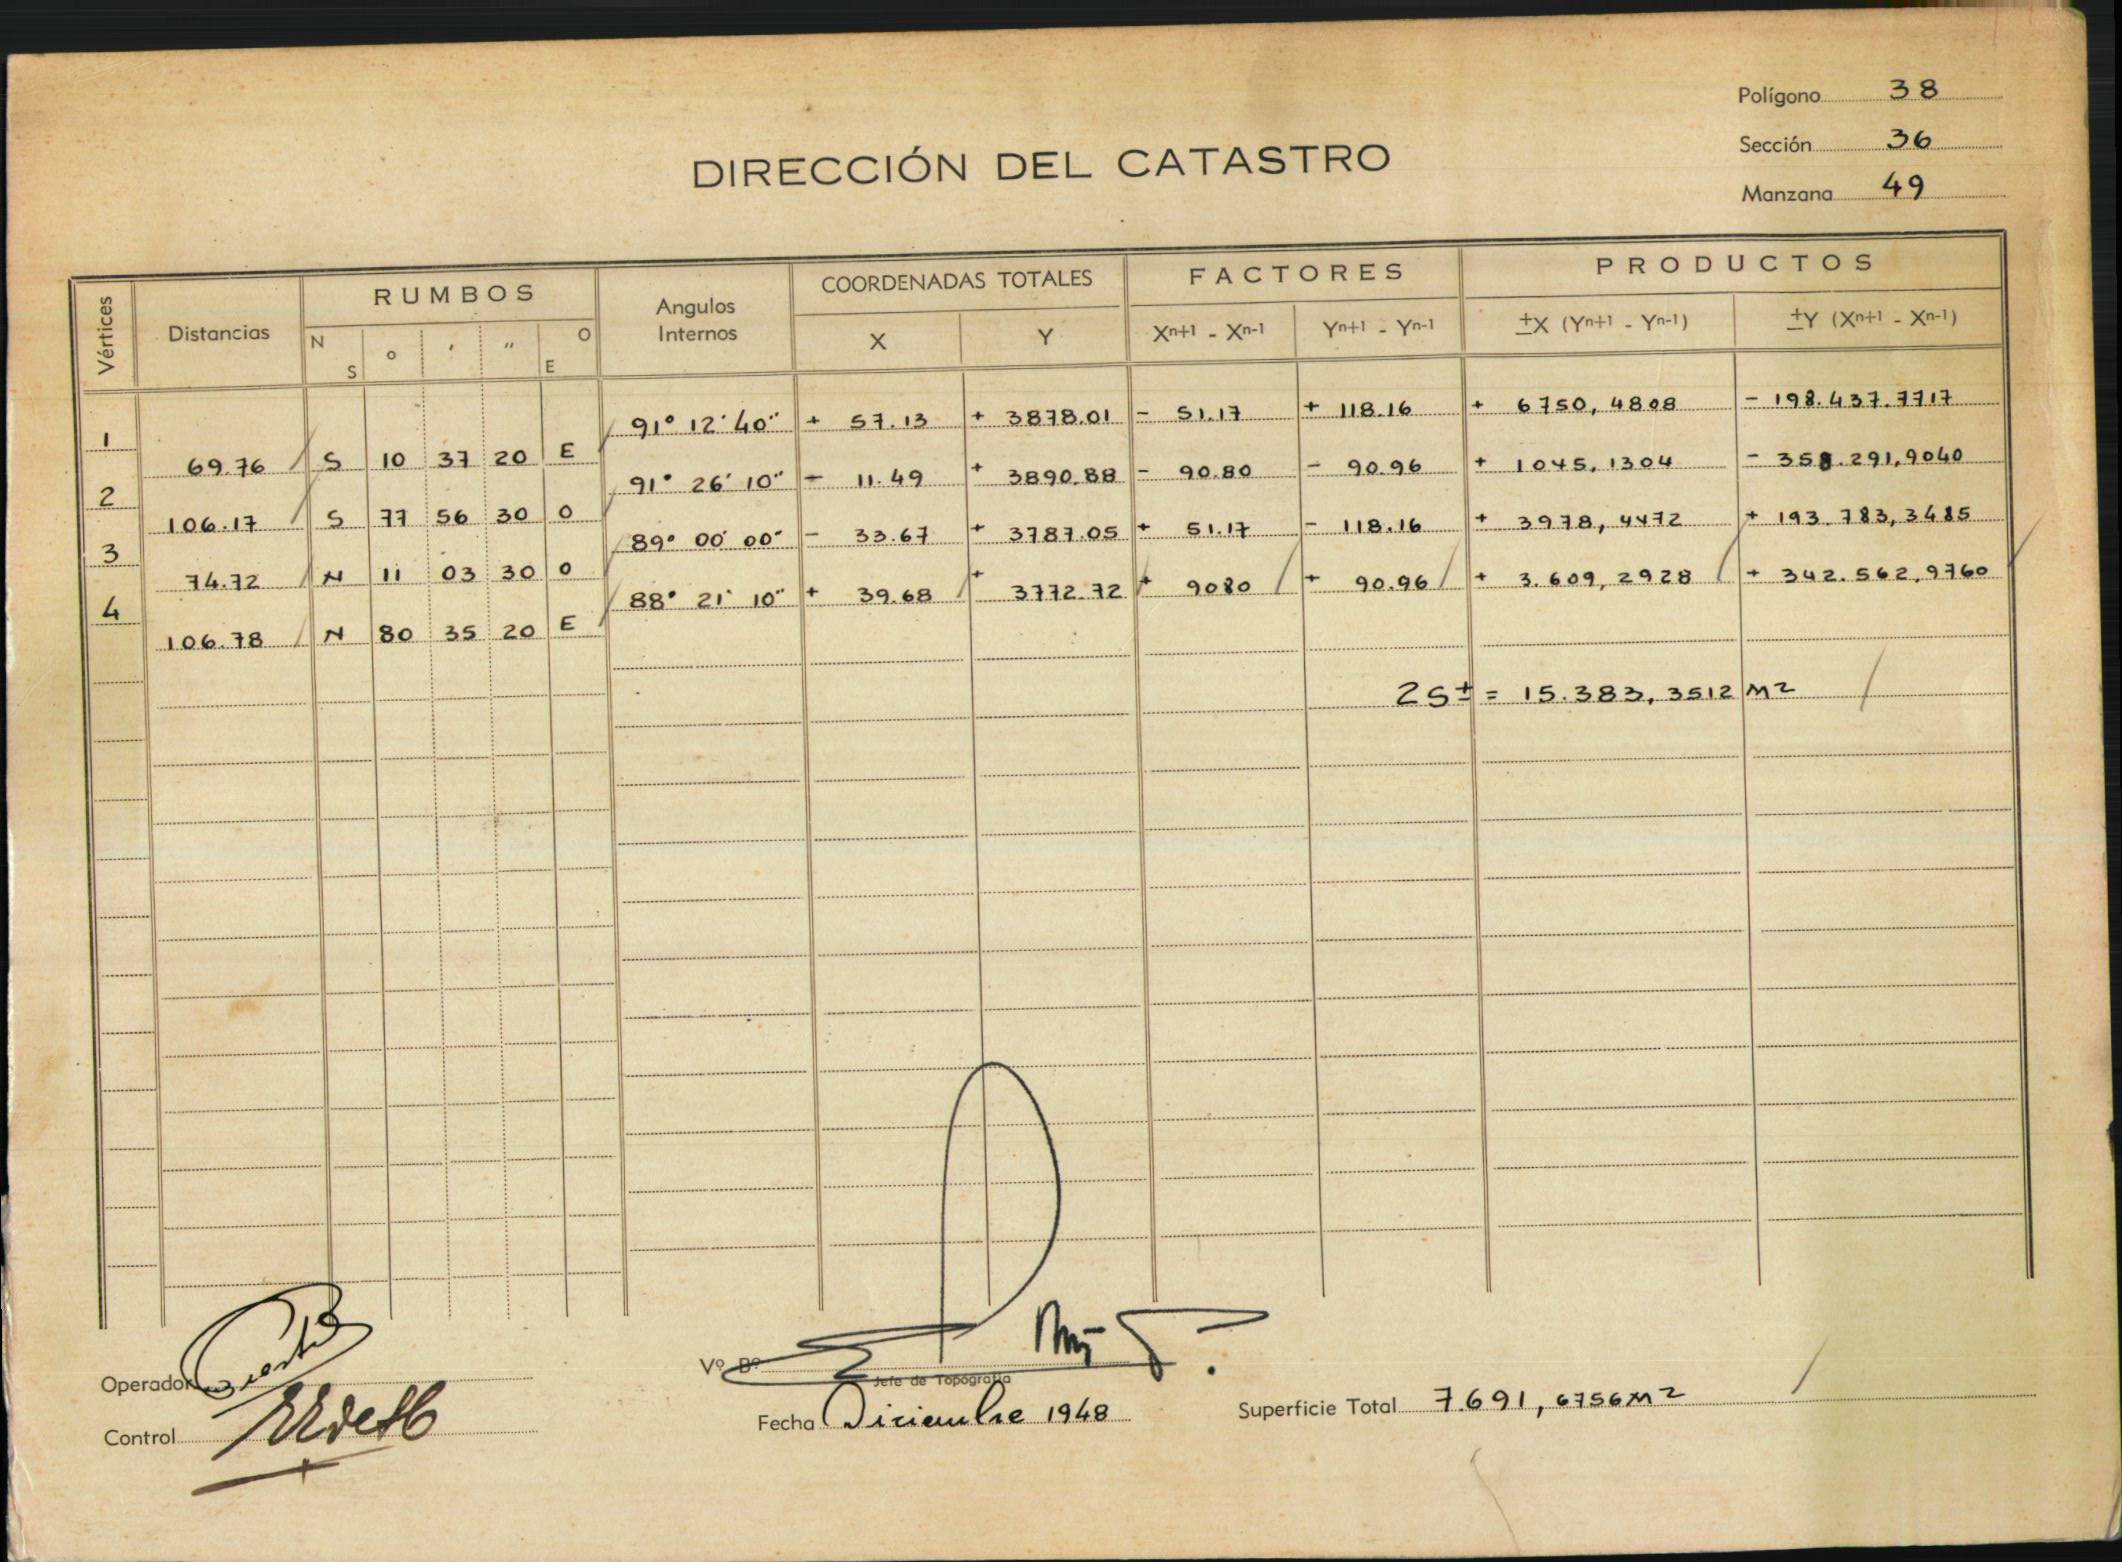 Polígono 38
Sección 36
Manzana 49
DIRECCIÓN DEL CATASTRO
Vértices Distancias RUMBOS Angulos Internos COORDENADAS TOTALES FACTORES PRODUCTOS
N S o ' " O E X Y Xn+1 - Xn-1 Yn+1 - Yn-1 ±X (Yn+1 - Yn-1) ±Y (Xn+1 - Xn-1)
1 91° 12' 40" + 57.13 + 3878.01 - 51.17 + 118.16 + 6750,4808 - 198.437.7717
69.76 S 10 37 20 E
2 91° 26' 10" - 11.49 + 3890.88 - 90.80 - 90.96 + 1045,1304 - 358.291,9040
106.17 S 77 56 30 O
3 89° 00' 00" - 33.67 + 3787.05 + 51.17 - 118.16 + 3978,4472 + 193.783,3485
74.72 N 11 03 30 O
4 88° 21' 10" + 39.68 + 3772.72 + 9080 + 90.96 + 3.609,2928 + 342.562,9760
106.78 N 80 35 20 E
2S± = 15.383,3512 M2
Operador
Control
Vº Bº
Jefe de Topografía
Fecha Diciembre 1948
Superficie Total 7.691,6756 M2